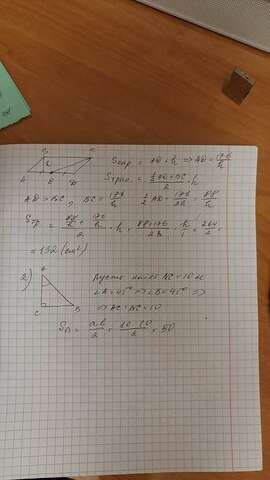 B C
h
A E D
Sпар = AD · h ⇒ AD = 176/h
Sтрап = (½AD + BC)/2 · h
AD = BC, BC = 176/h ½AD = 176/2h = 88/h
Sтр = (88/h + 176/h)/2 · h = (88+176)/2h · h/1 = 264/2 =
= 132 (см²)
2) A
C B
Пусть катет AC = 10 и
∠A = 45° ⇒ ∠B = 45° ⇒
⇒ AC = BC = 10
S△ = ab/2 = 10·10/2 = 50